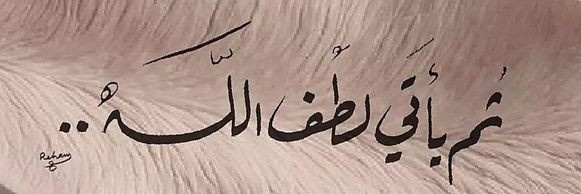 ثُم يأتَي لطُف اللّـهُ ..
Reham